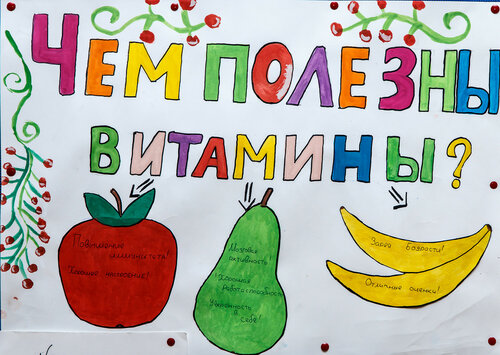 ЧЕМ ПОЛЕЗНЫ
ВИТАМИНЫ?
Повышение
иммунитета!
Хорошее настроение!
Мозговая
активность!
Хорошая
работоспособность
Уверенность
в
себе!
Заряд бодрости!
Отличные оценки!